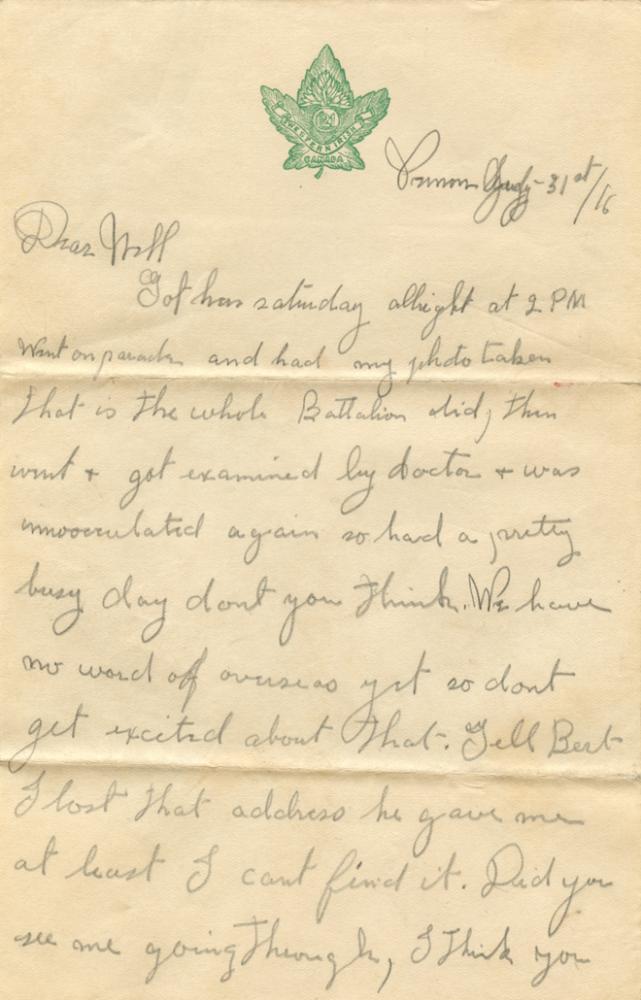 121
WESTERN IRISH
CANADA
Vernon July 31st/16
Dear Will
Got here saturday allright at 2 PM
went on parade and had my photo taken
that is the whole Battalion did, then
went + got examined by doctor + was
innocculated again so had a pretty
busy day dont you think. We have
no word off overseas yet so dont
get excited about that. Tell Bert
I lost that address he gave me
at least I cant find it. Did you
see me going through, I think you